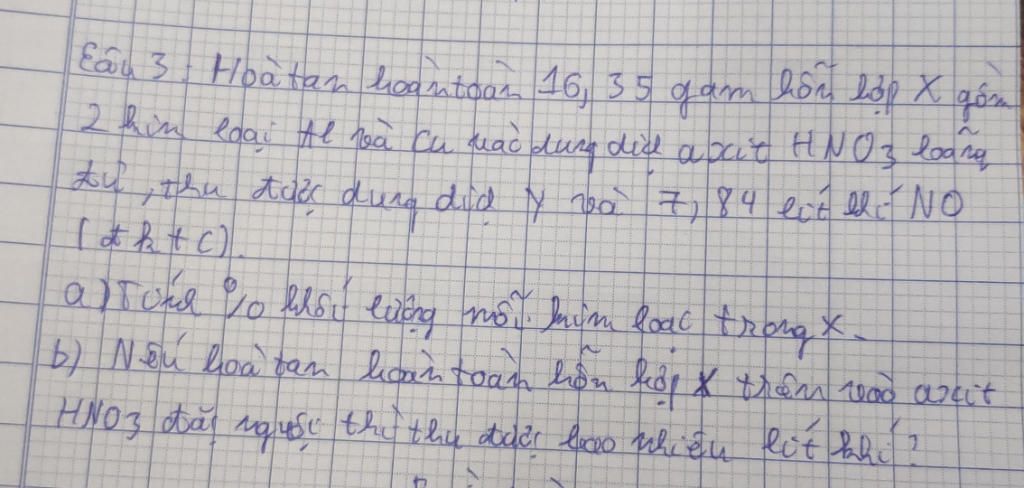 Câu 3: Hoà tan hoàn toàn 16,35 gam hỗn hợp X gồm
2 kim loại Al và Cu vào dung dịch axit HNO3 loãng
dư, thu được dung dịch Y và 7,84 lít khí NO
(đktc).
a) Tính % khối lượng mỗi kim loại trong X.
b) Nếu hoà tan hoàn toàn hỗn hợp X trên vào axit
HNO3 đặc nguội thì thu được bao nhiêu lít khí?